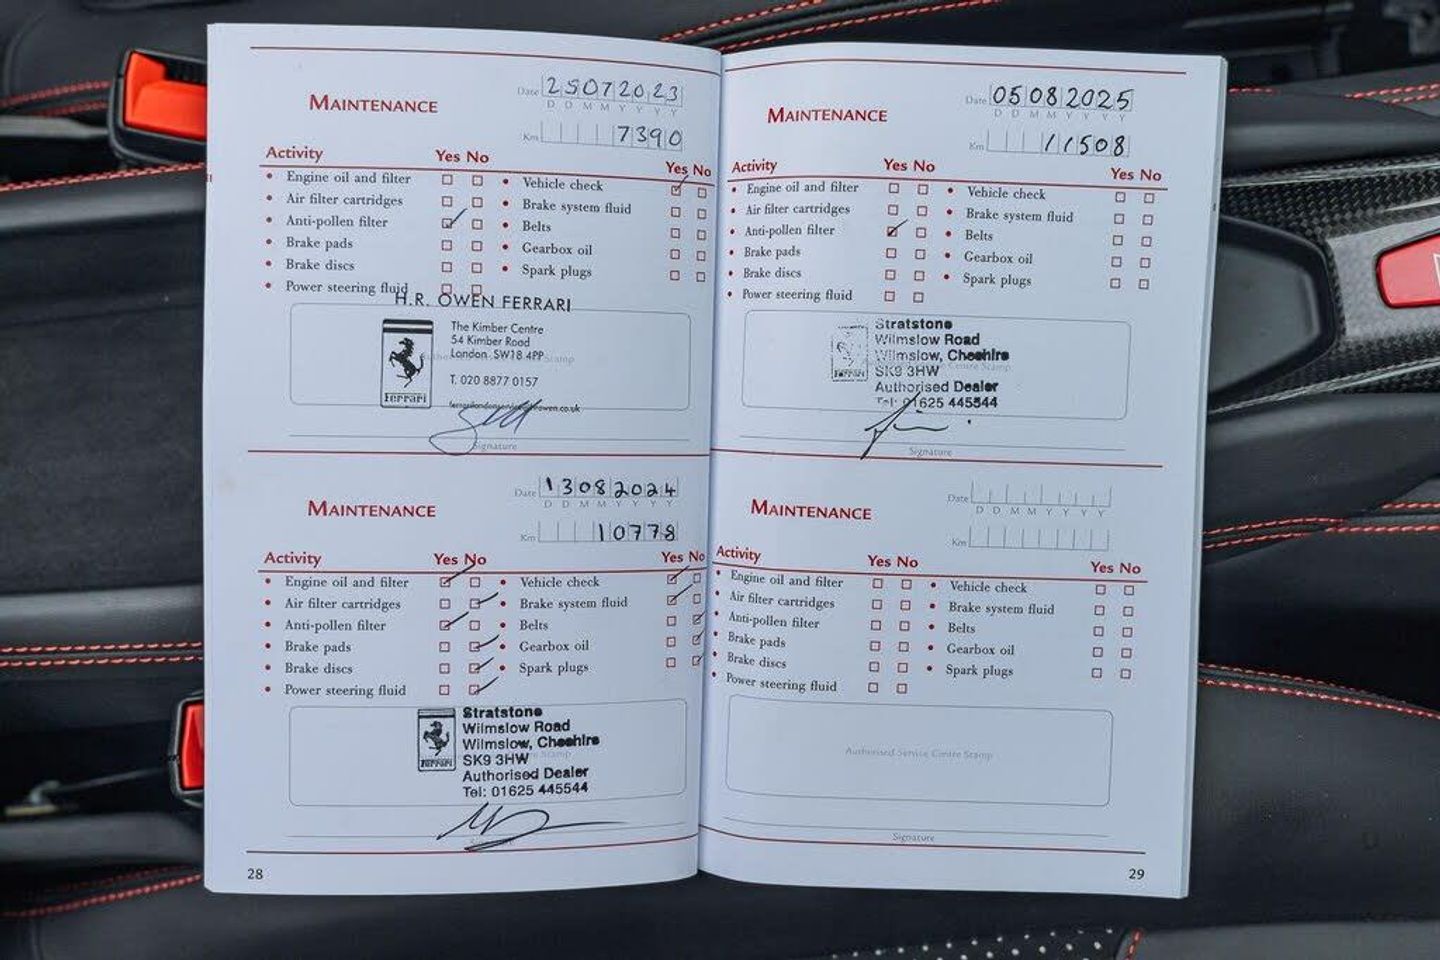 MAINTENANCE
Date 25072023
D D M M Y Y Y Y
Km 7390
Activity Yes No Yes No
• Engine oil and filter • Vehicle check
• Air filter cartridges • Brake system fluid
• Anti-pollen filter • Belts
• Brake pads • Gearbox oil
• Brake discs • Spark plugs
• Power steering fluid
H.R. OWEN FERRARI
The Kimber Centre
54 Kimber Road
London SW18 4PP
Stamp
T. 020 8877 0157
Ferrari
Signature
MAINTENANCE
Date 13082024
D D M M Y Y Y Y
Km 10778
Activity Yes No Yes No
• Engine oil and filter • Vehicle check
• Air filter cartridges • Brake system fluid
• Anti-pollen filter • Belts
• Brake pads • Gearbox oil
• Brake discs • Spark plugs
• Power steering fluid
Stratstone
Wilmslow Road
Wilmslow, Cheshire
SK9 3HW
Authorised Dealer
Tel: 01625 445544
Ferrari
28
MAINTENANCE
Date 05082025
D D M M Y Y Y Y
Km 11508
Activity Yes No Yes No
• Engine oil and filter • Vehicle check
• Air filter cartridges • Brake system fluid
• Anti-pollen filter • Belts
• Brake pads • Gearbox oil
• Brake discs • Spark plugs
• Power steering fluid
Stratstone
Wilmslow Road
Wilmslow, Cheshire
SK9 3HW Centre Stamp
Authorised Dealer
Tel: 01625 445544
Ferrari
Signature
MAINTENANCE
Date
D D M M Y Y Y Y
Km
Activity Yes No Yes No
• Engine oil and filter • Vehicle check
• Air filter cartridges • Brake system fluid
• Anti-pollen filter • Belts
• Brake pads • Gearbox oil
• Brake discs • Spark plugs
• Power steering fluid
Authorised Service Centre Stamp
Signature
29